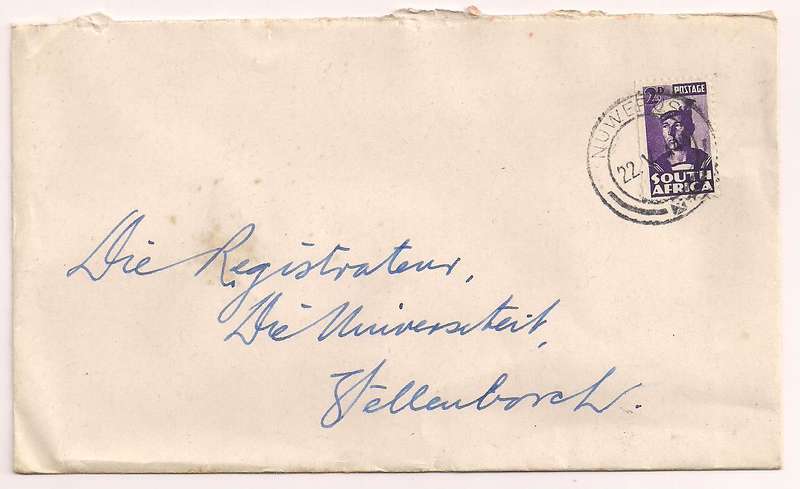 2D POSTAGE
SOUTH
AFRICA
22
Die Registrateur,
Die Universiteit,
Stellenbosch.